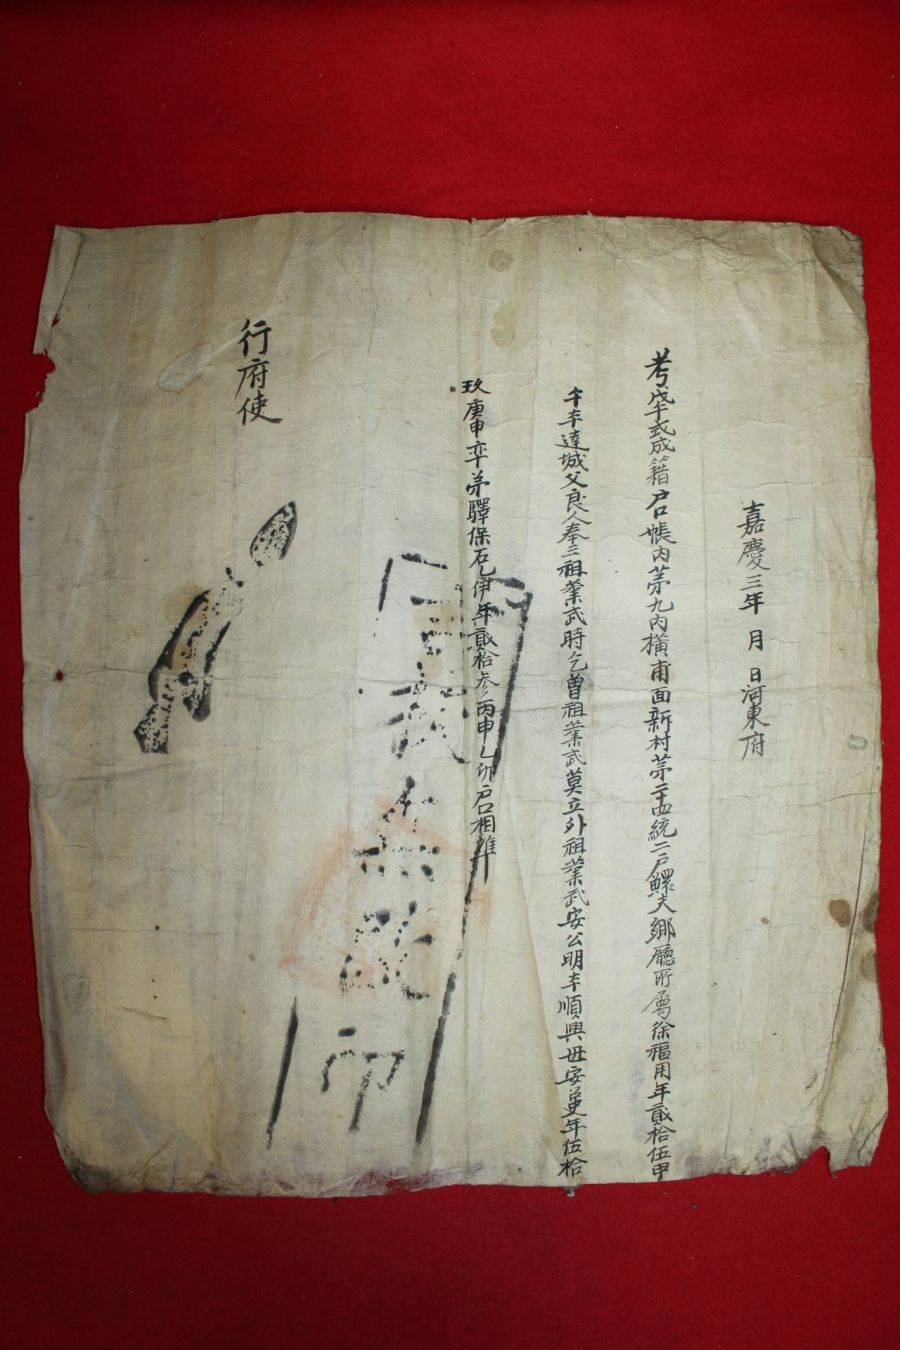 嘉慶三年 月 日河東府
考戊午式成籍户口帳內茅九內橫甫面新村茅二十四統二户鰥夫鄉廳所屬徐福用年貳拾伍甲
午本達城父良人奉三祖業武時乞曾祖業武莫立外祖業武安公明本順興母安 年伍拾
玖庚申卒弟驛保石乙伊年貳拾參丙申乙卯户口相準
行府使